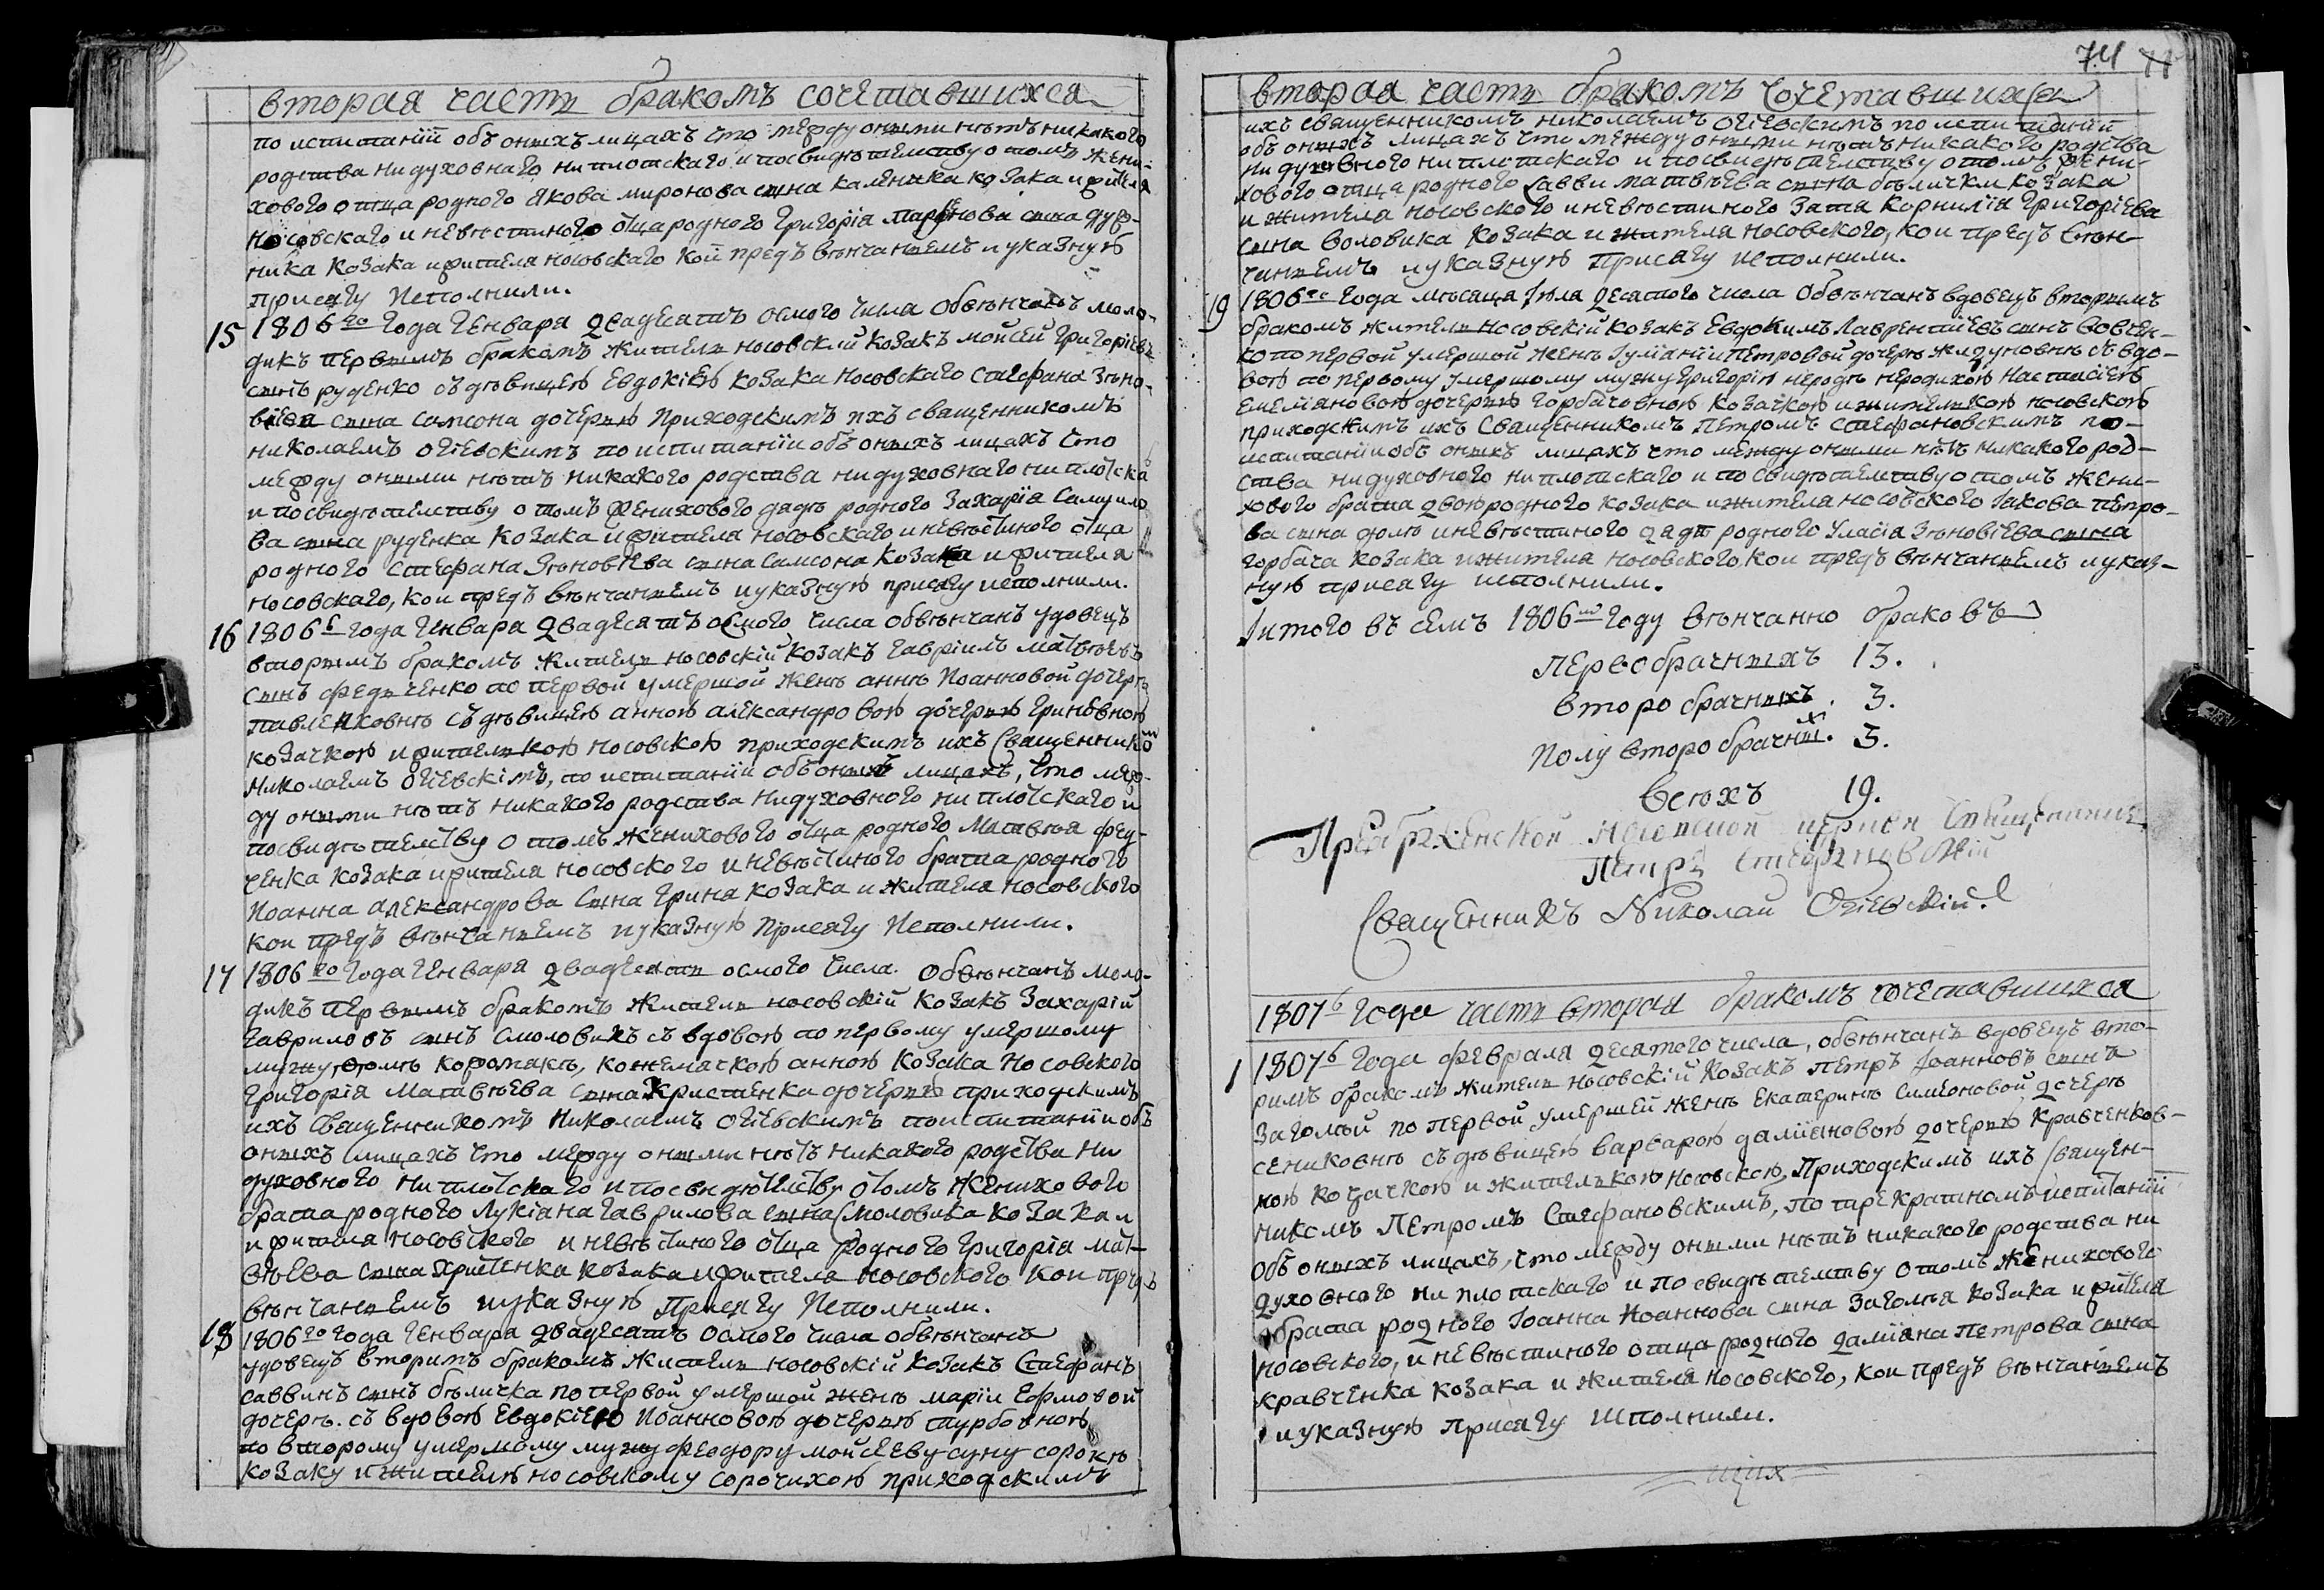 вторая часть бракомъ сочетавшихся
по испитаніи объ оныхъ лицахъ что между оными нѣтъ никакого
родства ни духовнаго ни плотскаго и посвидѣтелству о томъ жени-
хового отца родного Якова миронова сына каленика козака и жителя
носовскаго и невѣстиного отца родного Григорія сына
ника козака и жителя носовскаго кои предъ вѣнчаніемъ и указную
присягу исполнили.
15 1806го года Генваря двадесятъ осмого числа обвѣнчанъ моло-
дикъ первымъ бракомъ житель носовский козакъ мойсей григоріевъ
сынъ руденко съ дѣвицею Евдокіею козака носовскаго стефана зѣно-
віева сына самсона дочерью приходскимъ ихъ священникомъ
николаемъ огіевскимъ по испитаніи объ оныхъ лицахъ что
между оными нѣтъ никакого родства ни духовнаго ни плотска
и по свидѣтелству о томъ женихового дядѣ родного Захарія Самуило
ва сына руденка козака и жителя носовскаго и невѣстиного отца
родного стефана Зѣновіева сына самсона козака и жителя
носовскаго, кои предъ вѣнчаніемъ и указную присягу исполнили.
16 1806г года Генваря двадесятъ осмого числа обвѣнчанъ удовецъ
вторымъ бракомъ житель носовскій козакъ Гавріилъ матвѣевъ
сынъ федченко по первой умершой женѣ аннѣ Иоанновой дочерѣ
павленковнѣ съ дѣвицею анною александровою дочерью Гриновною
козачкою и жителькою носовскою приходскимъ ихъ священнико
Николаемъ огіевскімъ, по испитаніи объ оныхъ лицахъ, что меж-
ду оными нѣтъ никакого родства ни духовного ни плотскаго и
посвидѣтелству о томъ женихового отца родного Матвѣя фед-
ченка козака и жителя носовского и невѣстиного брата родного
Иоанна александрова сына Грина козака и жителя носовского
кои предъ вѣнчаніемъ и указную присягу исполнили.
17 1806го года Генваря двадесять осмого числа. обвѣнчанъ моло-
дикъ первымъ бракомъ житель носовскій козакъ Захарій
Гавриловъ сынъ Смоловикъ съ вдовою по первому умершому
мужу кожемячкою анною козака носовского
Григорія Матвѣева сына Христенка дочерью приходскимъ
ихъ священникомъ Николаемъ огіевскимъ по испитаніи объ
оныхъ лицахъ что между оными нѣтъ никакого родства ни
духовного ни плотскаго и посвидѣтелству отомъ женихового
брата родного Лукіана Гаврилова сына Смоловика козака и
и жителя носовского и невѣстиного отца родного Григорія мат-
вѣева сына христенка козака и жителя носовского кои предъ
вѣнчаніемъ и указную присягу исполнили.
18 1806го года Генваря двадесятъ осмого числа обвѣнчанъ
удовецъ вторимъ бракомъ житель носовскій козакъ Стефанъ
саввинъ сынъ бѣличка по первой умершой женѣ маріи Ефимовой
дочерѣ. съ вдовою Евдокіею Иоанновою дочерью турбовною
по второму умершому мужу феодору мойсееву суну сорокѣ
козаку и жителю носовскому сорочихою приходскимъ
74
вторая часть бракомъ сочетавшихся
ихъ священникомъ николаемъ огіевскимъ по испитаніи
объ оныхъ лицахъ что между оными нѣтъ никакого родства
ни духовного ни плотскаго и посвидѣтелству отомъ жени-
хового отца родного Саввы матвѣева сына бѣлички козака
и жителя носовского и невѣстиного зятя Корнилія Григоріева
сына воловика козака и жителя носовского, кои предъ вѣн-
чаніемъ и указную присягу исполнили.
19 1806го года мѣсяца Іюля десятого числа обвѣнчанъ вдовецъ вторымъ
бракомъ житель носовскій козакъ Евдокимъ Лаврентіевъ сынъ вовчен-
ко по первой умершой женѣ Іуліаніи Петровой дочерѣ жидуновнѣ съ вдо-
вою по первому умершому мужу Григорію неродѣ неродихою Настасіею
Емеліановою дочерью Горбачовною козачкою и жителькою носовскою
приходскимъ ихъ священникомъ Петромъ Стефановскимъ по-
испитаніи объ оныхъ лицахъ что между оными нѣтъ никакого род-
ства ни духовного ни плотскаго и по свидѣтелству о томъ жени-
хового брата двоюродного козака и жителя носовского Іакова петро-
ва сына и невѣстиного дядѣ родного Уласія Зѣновіева сына
горбача козака и жителя носовского, кои предъ вѣнчаніемъ и указ-
ную присягу исполнили.
Іитого въ семъ 1806мъ году вѣнчанно браковъ
первобрачныхъ 13.
второбрачныхъ. 3.
полувторобрачных. 3.
Всѣхъ 19.
Преображенской церкви Священникъ
Петръ Стефановскій
Священникъ Николай Огіевскій.
1807г года часть вторая бракомъ сочетавшихся
1 1807г года февраля десятого числа, обвѣнчанъ вдовецъ вто-
римъ бракомъ житель носовскій козакъ Петръ Іоанновъ сынъ
Заголый по первой умершей женѣ Екатеринѣ Симеоновой дочерѣ
сениковнѣ съ дѣвицею варварою даміановою дочерью кравченков-
ною козачкою и жителькою носовскою, приходскимъ ихъ священ-
никомъ Петромъ Стефановскимъ, по трекратномъ испитаніи
объ оныхъ лицахъ, что между оными нѣтъ никакого родства ни
духовного ни плотскаго и по свидѣтелству отомъ женихового
брата родного Іоанна Иоаннова сына заголья козака и жителя
носовского, и невѣстиного отца родного даміана петрова сына
кравченка козака и жителя носовского, кои предъ вѣнчаніемъ
и указную присягу исполнили.